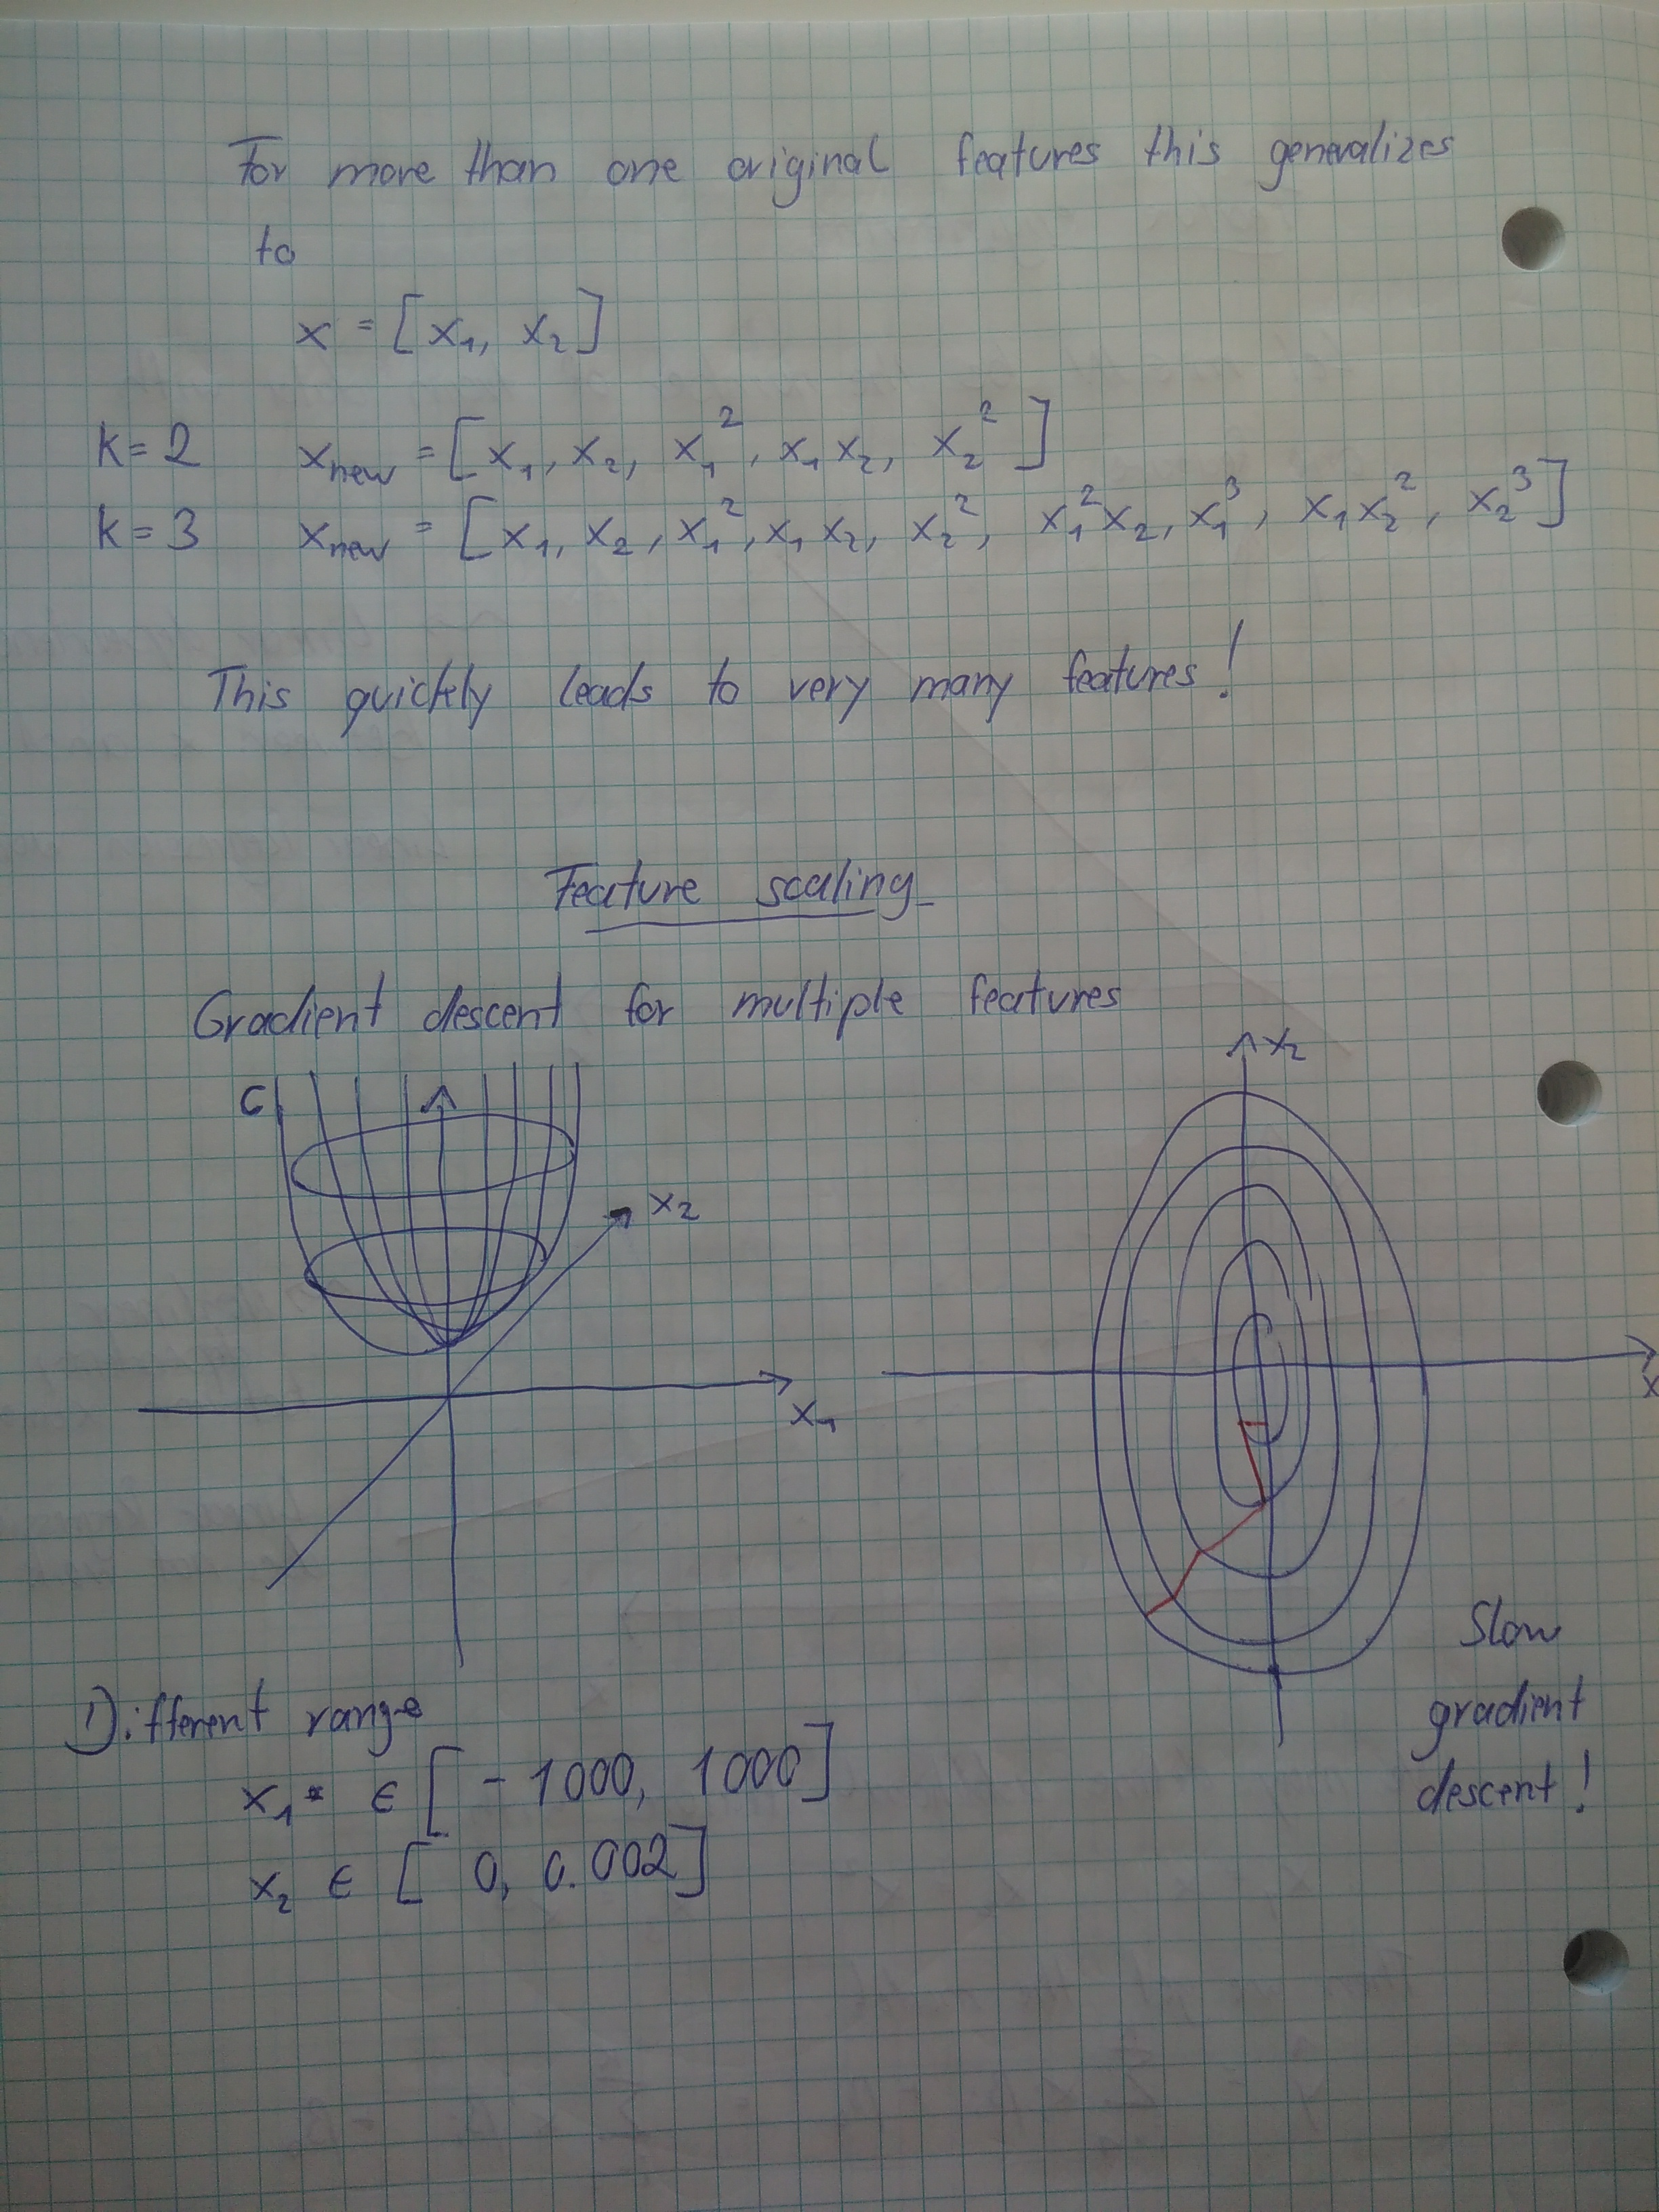 For more than one original features this generalizes
to
x = [x₁, x₂]
k=2 x_new = [x₁, x₂, x₁², x₁ x₂, x₂²]
k=3 x_new = [x₁, x₂, x₁², x₁ x₂, x₂², x₁²x₂, x₁³, x₁x₂², x₂³]
This quickly leads to very many features!
Feature scaling
Gradient descent for multiple features
C
x₂
x₁
x₂
x
Slow
gradient
descent!
Different range
x₁ ∈ [-1000, 1000]
x₂ ∈ [0, 0.002]